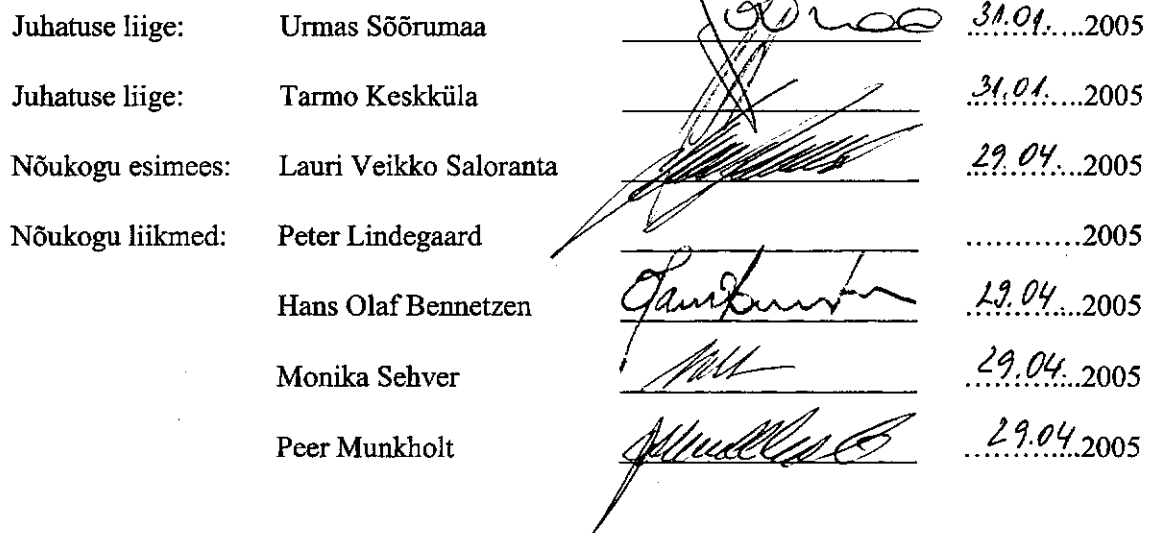 Juhatuse liige: Urmas Sõõrumaa 31.01.....2005
Juhatuse liige: Tarmo Keskküla 31.01.....2005
Nõukogu esimees: Lauri Veikko Saloranta 29.04....2005
Nõukogu liikmed: Peter Lindegaard ............2005
Hans Olaf Bennetzen 29.04....2005
Monika Sehver 29.04...2005
Peer Munkholt 29.04.2005